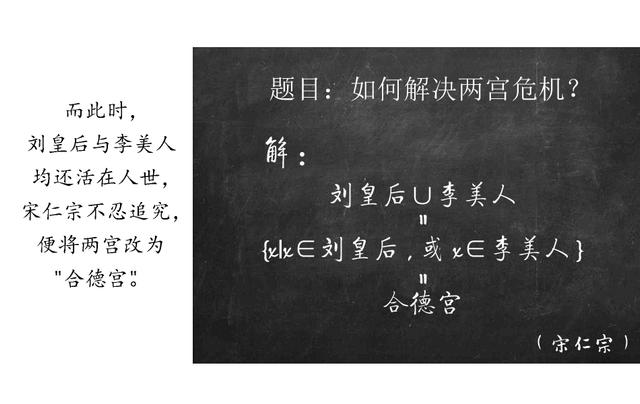 而此时，
刘皇后与李美人
均还活在人世，
宋仁宗不忍追究，
便将两宫改为
"合德宫"。
题目：如何解决两宫危机？
解：
刘皇后∪李美人
=
{x|x∈刘皇后，或 x∈李美人}
=
合德宫
（宋仁宗）